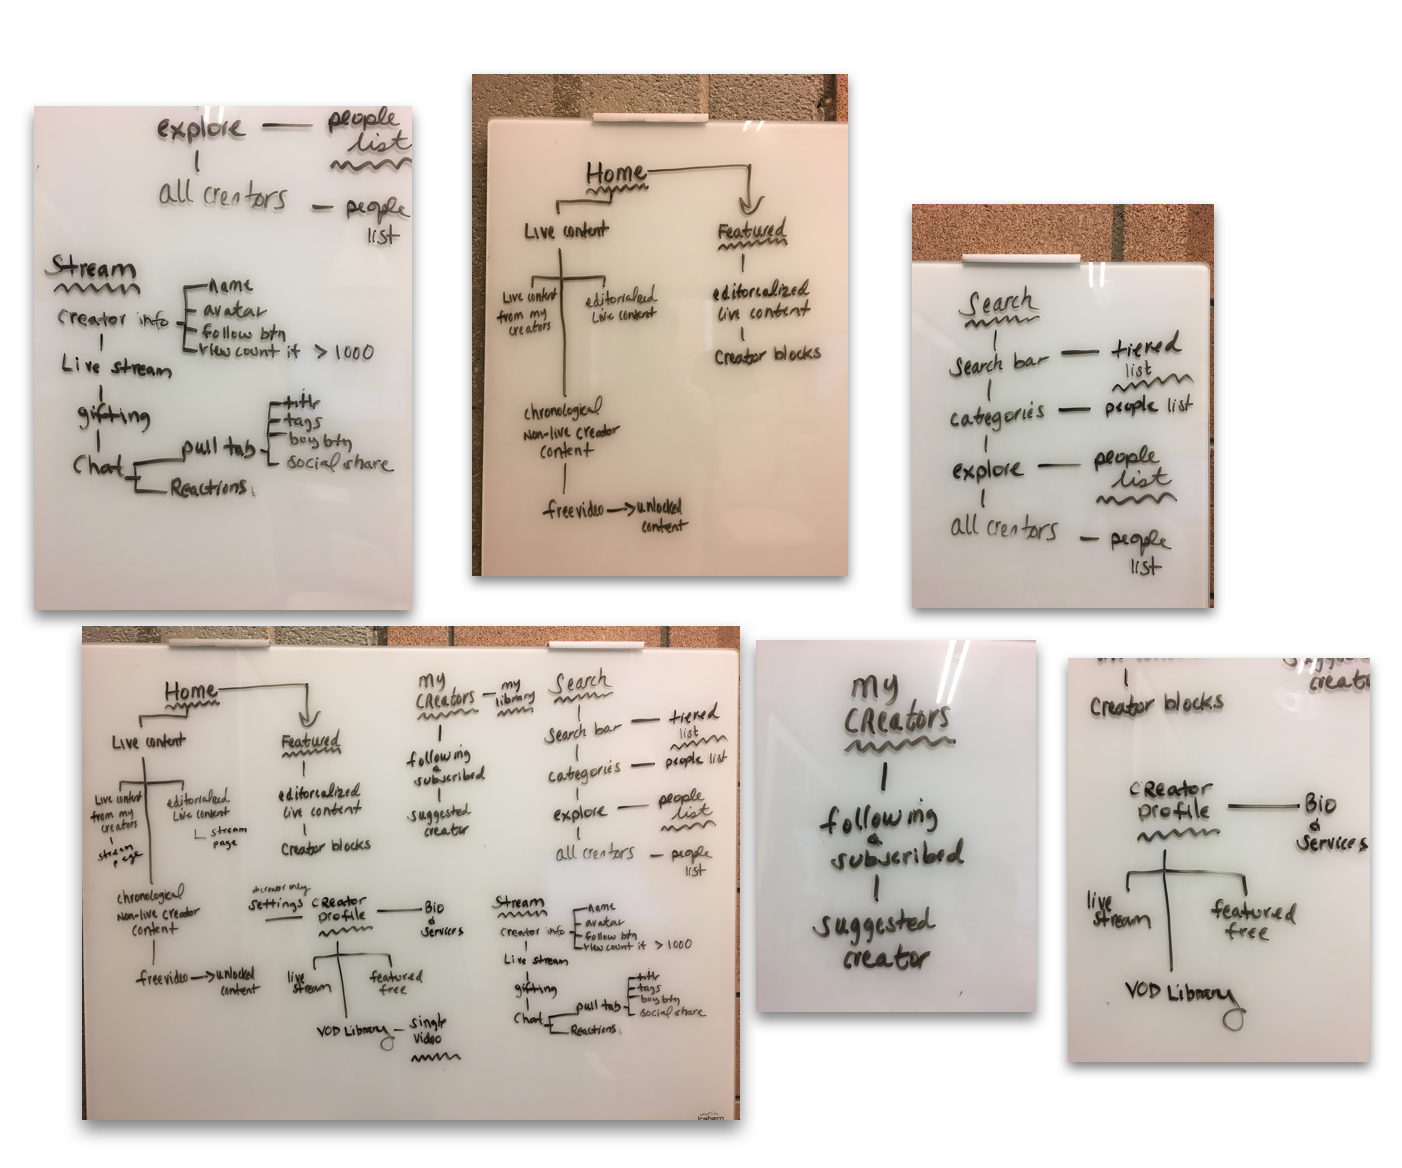 explore — people
list
all creators — people
list
Stream
Creator info
name
avatar
follow btn
view count if > 1000
Live stream
gifting
Chat
pull tab
title
tags
buy btn
social share
Reactions
Home
Live content
Live content
from my
creators
editorialized
Live content
chronological
Non-live creator
content
free video → unlocked
content
Featured
editorialized
live content
Creator blocks
Search
Search bar — tiered
list
categories — people list
explore — people
list
all creators — people
list
Home
Live content
Live content
from my
creators
stream
page
editorialized
Live content
stream
page
chronological
Non-live creator
content
free video → unlocked
content
Featured
editorialized
live content
Creator blocks
my
Creators — my
library
following
&
subscribed
suggested
creator
Search
Search bar — tiered
list
categories — people list
explore — people
list
all creators — people
list
settings
Creator
profile — Bio
&
Services
live
stream
featured
free
VOD Library — single
video
Stream
Creator info
name
avatar
follow btn
view count if > 1000
Live stream
gifting
Chat
pull tab
title
tags
buy btn
social share
Reactions
my
Creators
following
&
subscribed
suggested
creator
Creator blocks
suggested
creato
Creator
profile — Bio
&
Services
live
stream
featured
free
VOD Library